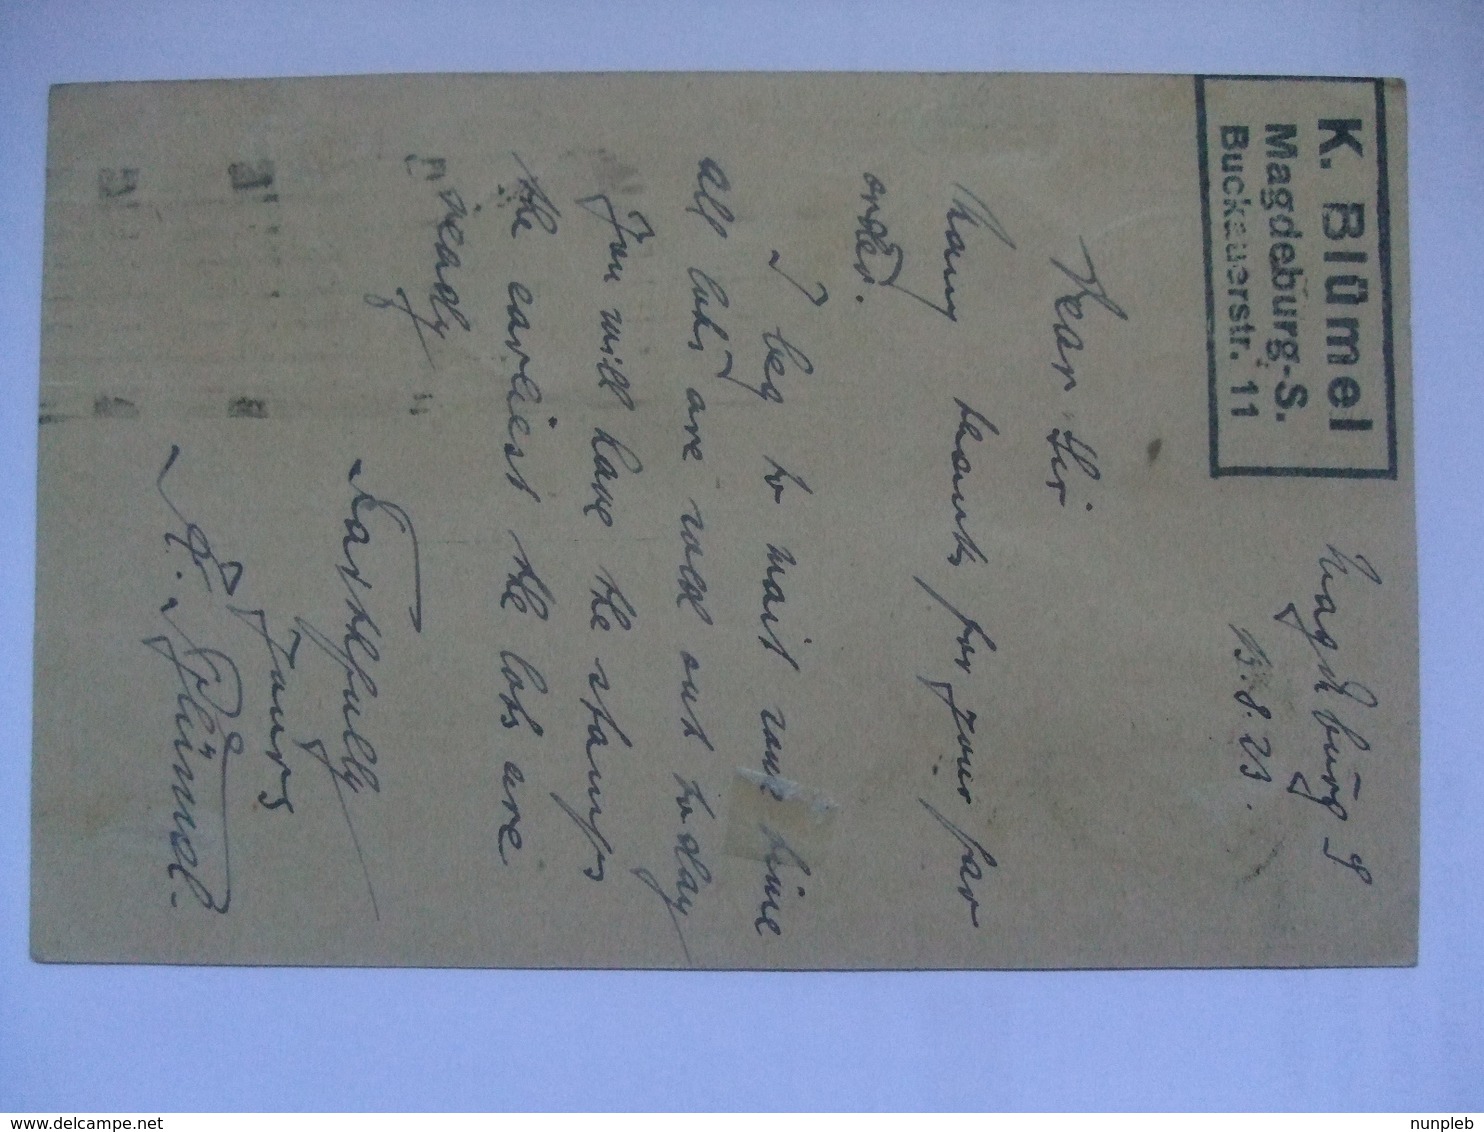 K. Blümel
Magdeburg-S.
Buckauerstr. 11
Magdeburg S
13.8.23.
Dear Sir
Many teanks for your far
order.
I beg to wait some time
all lots are sold out today
You will have the stamps
the earliest the lots are
ready
Faithfully
Yours
K. Blümel.
nunpleb
delcampe.net